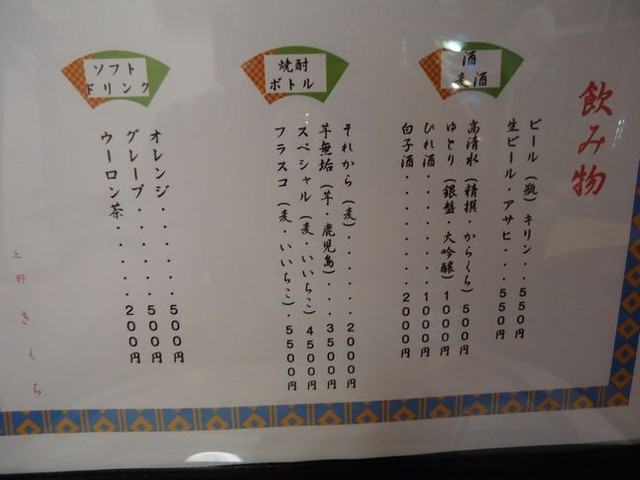 飲み物
酒
麦酒
ビール(瓶)キリン・・・550円
生ビール・アサヒ・・・550円
高清水(精撰・からくち)500円
ゆとり(銀盤・大吟醸)1000円
ひれ酒・・・・・・・・1000円
白子酒・・・・・・・・2000円
焼酎
ボトル
それから(麦)・・・・・2000円
芋無垢(芋・鹿児島)・・・3500円
スペシャル(麦・いいちこ)4500円
フラスコ(麦・いいちこ)・5500円
ソフト
ドリンク
オレンジ・・・・・500円
グレープ・・・・・500円
ウーロン茶・・・・200円
上野 きくち